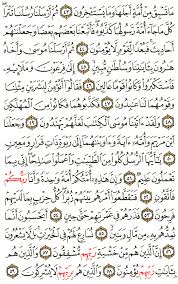 مَا تَسْبِقُ مِنْ أُمَّةٍ أَجَلَهَا وَمَا يَسْتَـْٔخِرُونَ ٤٣ ثُمَّ أَرْسَلْنَا رُسُلَنَا تَتْرَا
كُلَّ مَا جَآءَ أُمَّةً رَّسُولُهَا كَذَّبُوهُ فَأَتْبَعْنَا بَعْضَهُم بَعْضًا وَجَعَلْنَٰهُمْ
أَحَادِيثَ فَبُعْدًا لِّقَوْمٍ لَّا يُؤْمِنُونَ ٤٤ ثُمَّ أَرْسَلْنَا مُوسَىٰ وَأَخَاهُ
هَٰرُونَ بِـَٔايَٰتِنَا وَسُلْطَٰنٍ مُّبِينٍ ٤٥ إِلَىٰ فِرْعَوْنَ وَمَلَإِيْهِۦ
فَٱسْتَكْبَرُوا۟ وَكَانُوا۟ قَوْمًا عَالِينَ ٤٦ فَقَالُوٓا۟ أَنُؤْمِنُ لِبَشَرَيْنِ مِثْلِنَا
وَقَوْمُهُمَا لَنَا عَٰبِدُونَ ٤٧ فَكَذَّبُوهُمَا فَكَانُوا۟ مِنَ ٱلْمُهْلَكِينَ
٤٨ وَلَقَدْ ءَاتَيْنَا مُوسَى ٱلْكِتَٰبَ لَعَلَّهُمْ يَهْتَدُونَ ٤٩ وَجَعَلْنَا
ٱبْنَ مَرْيَمَ وَأُمَّهُۥٓ ءَايَةً وَءَاوَيْنَٰهُمَآ إِلَىٰ رَبْوَةٍ ذَاتِ قَرَارٍ وَمَعِينٍ
٥٠ يَٰٓأَيُّهَا ٱلرُّسُلُ كُلُوا۟ مِنَ ٱلطَّيِّبَٰتِ وَٱعْمَلُوا۟ صَٰلِحًا إِنِّى بِمَا
تَعْمَلُونَ عَلِيمٌ ٥١ وَإِنَّ هَٰذِهِۦٓ أُمَّتُكُمْ أُمَّةً وَٰحِدَةً وَأَنَا۠ رَبُّكُمْ
فَٱتَّقُونِ ٥٢ فَتَقَطَّعُوٓا۟ أَمْرَهُم بَيْنَهُمْ زُبُرًا كُلُّ حِزْبٍۭ بِمَا لَدَيْهِمْ
فَرِحُونَ ٥٣ فَذَرْهُمْ فِى غَمْرَتِهِمْ حَتَّىٰ حِينٍ ٥٤ أَيَحْسَبُونَ أَنَّمَا
نُمِدُّهُم بِهِۦ مِن مَّالٍ وَبَنِينَ ٥٥ نُسَارِعُ لَهُمْ فِى ٱلْخَيْرَٰتِ بَل لَّا يَشْعُرُونَ
٥٦ إِنَّ ٱلَّذِينَ هُم مِّنْ خَشْيَةِ رَبِّهِم مُّشْفِقُونَ ٥٧ وَٱلَّذِينَ هُم
بِـَٔايَٰتِ رَبِّهِمْ يُؤْمِنُونَ ٥٨ وَٱلَّذِينَ هُم بِرَبِّهِمْ لَا يُشْرِكُونَ ٥٩